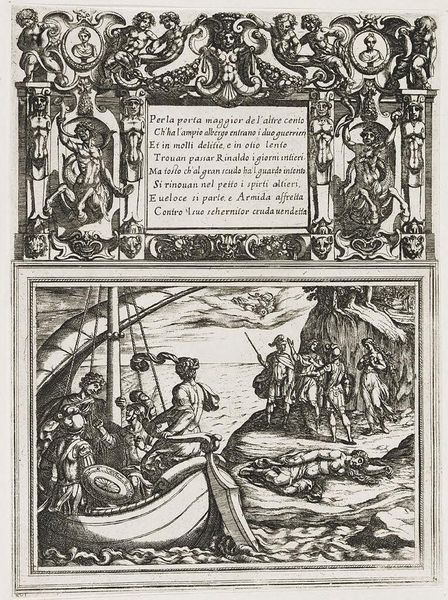 Per la porta maggior de l'altre cento
Ch'ha l'ampio albergo entrano i duo guerrieri
Et in molli delitie, e in otio lento
Trouan passar Rinaldo i giorni intieri.
Ma tosto ch'al gran scudo ha l guardo intento
Si rinouan nel petto i spirti altieri,
E ueloce si parte, e Armida affretta
Contro 'l suo schernitor cruda uendetta